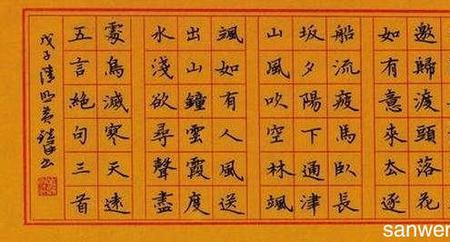 邀歸渡頭落花
如有意來去逐
船流疲馬臥長
坂夕陽下通津
山風吹空林颯
颯如有人風送
出山鐘雲霞度
水淺欲尋聲盡
處鳥滅寒天遠
五言絕句三首
戊子清明黄
sanwen